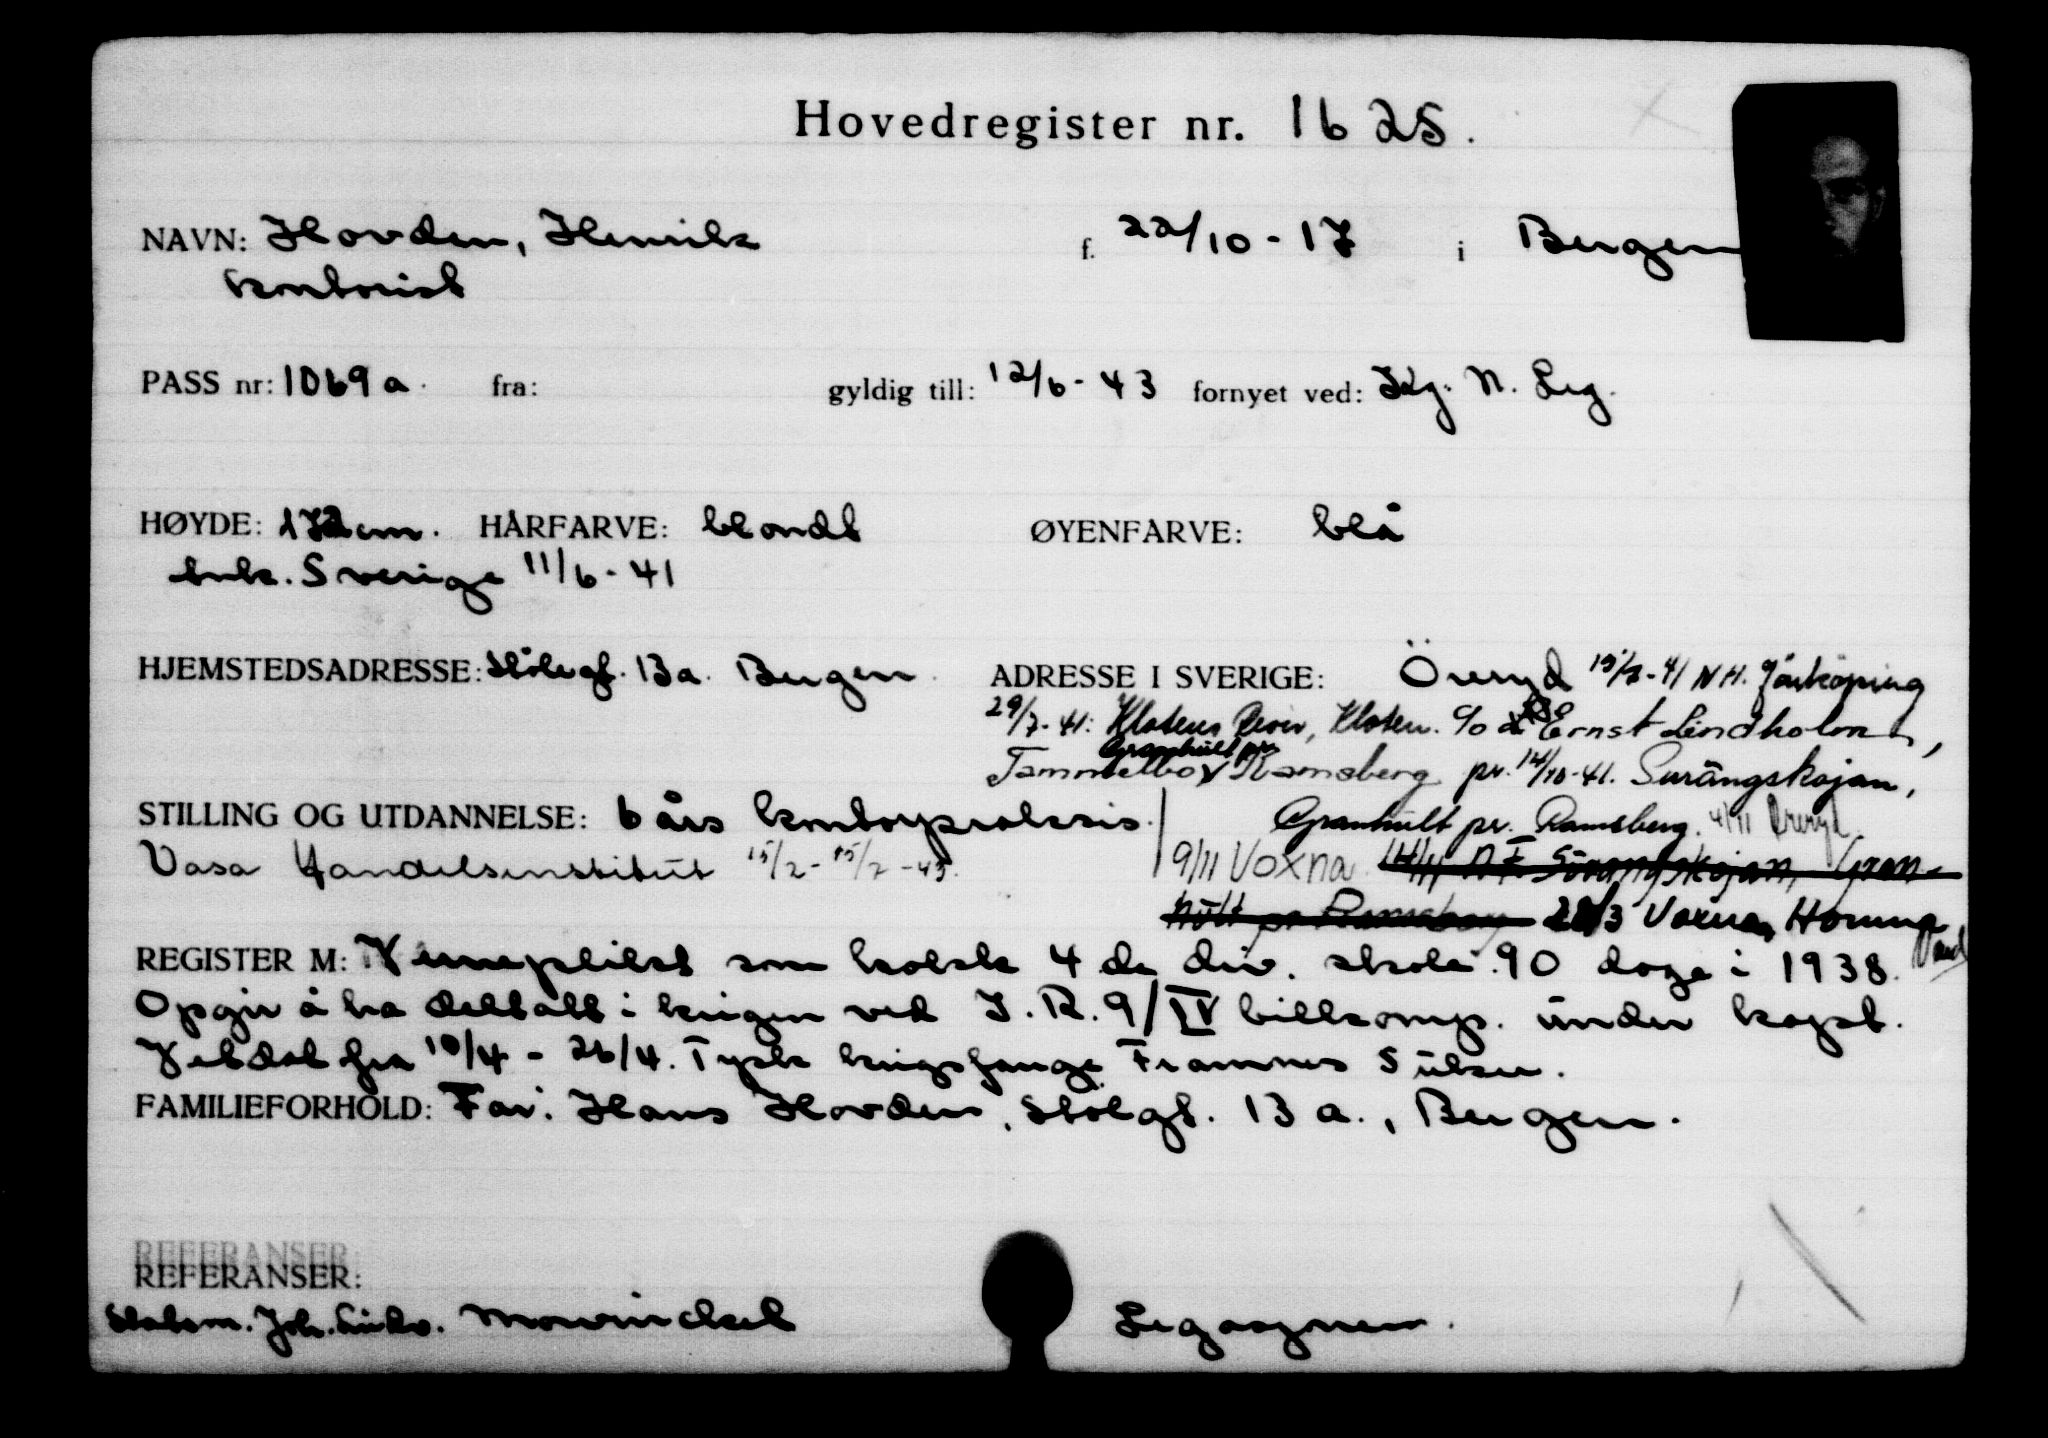 Hovedregister nr. 1625.
NAVN: Hovden, Henrik f. 22/10-17 i Bergen
kontorist
PASS nr: 1069a. fra: gyldig till: 12/6-43 fornyet ved: Kg. N. Leg.
HØYDE: 172cm. HÅRFARVE: blondt ØYENFARVE: blå
ank. Sverige 11/6-41
HJEMSTEDSADRESSE: Stølegt. 13a. Bergen. ADRESSE I SVERIGE: Öreryd 15/7-41 N H. Jönköping
29/7-41: Klotens Revir, Kloten. c/o Ernst Lindholm,
Granhult pr.
Tammelbo Ramsberg pr. 14/10-41. Surängskojan,
STILLING OG UTDANNELSE: 6 års kontorpraksis. Granhult pr. Ramsberg. 4/11 Öreryd.
Vasa Handelsinstitut 15/2-15/7-43. 9/11 Voxna 14/11 N F Surängskojan, Gran-
hult pr Ramsberg 28/3 Voxna,
REGISTER M: Verneplikt som kokk 4 de div. skole. 90 dage i 1938.
Opgir å ha deltatt i krigen ved I.R. 9/IV bilkomp. under kapt.
fra 10/4 - 26/4. Tysk krigsfange Framnes
FAMILIEFORHOLD: Far: Hans Hovden, Stølegt. 13a., Bergen.
REFERANSER
REFERANSER:
Statsm. Joh. Ludv. Mowinckel Legasjonen.